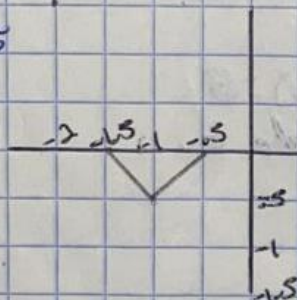 -2 -1.5 -1 -.5
-.5
-1
-1.5